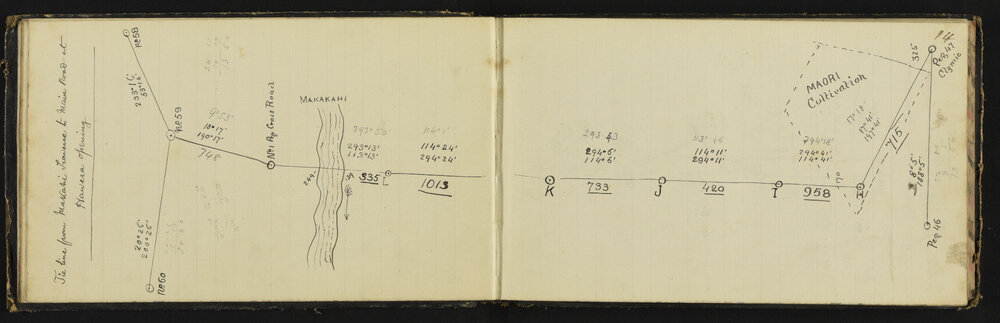 Tie line from Makakahi Traverse to Main Road at
Hawera opening
No58
233°16'
53°16'
No59
20°26'
200°26'
No60
9°53'
10°17'
190°17'
748
No1 Peg Cross Road
MAKAKAHI
249
39
292°50'
293°13'
113°13'
335
L
114°1'
114°24'
294°24'
1013
K
293 43
294°6'
114°6'
733
J
114°11'
294°11'
420
I
294°18'
294°41'
114°41'
958
170
MAORI
Cultivation
17°18'
17°41'
197°41'
715
325
14
Peg 47
Clymic
8°5'
188°5'
Peg 46